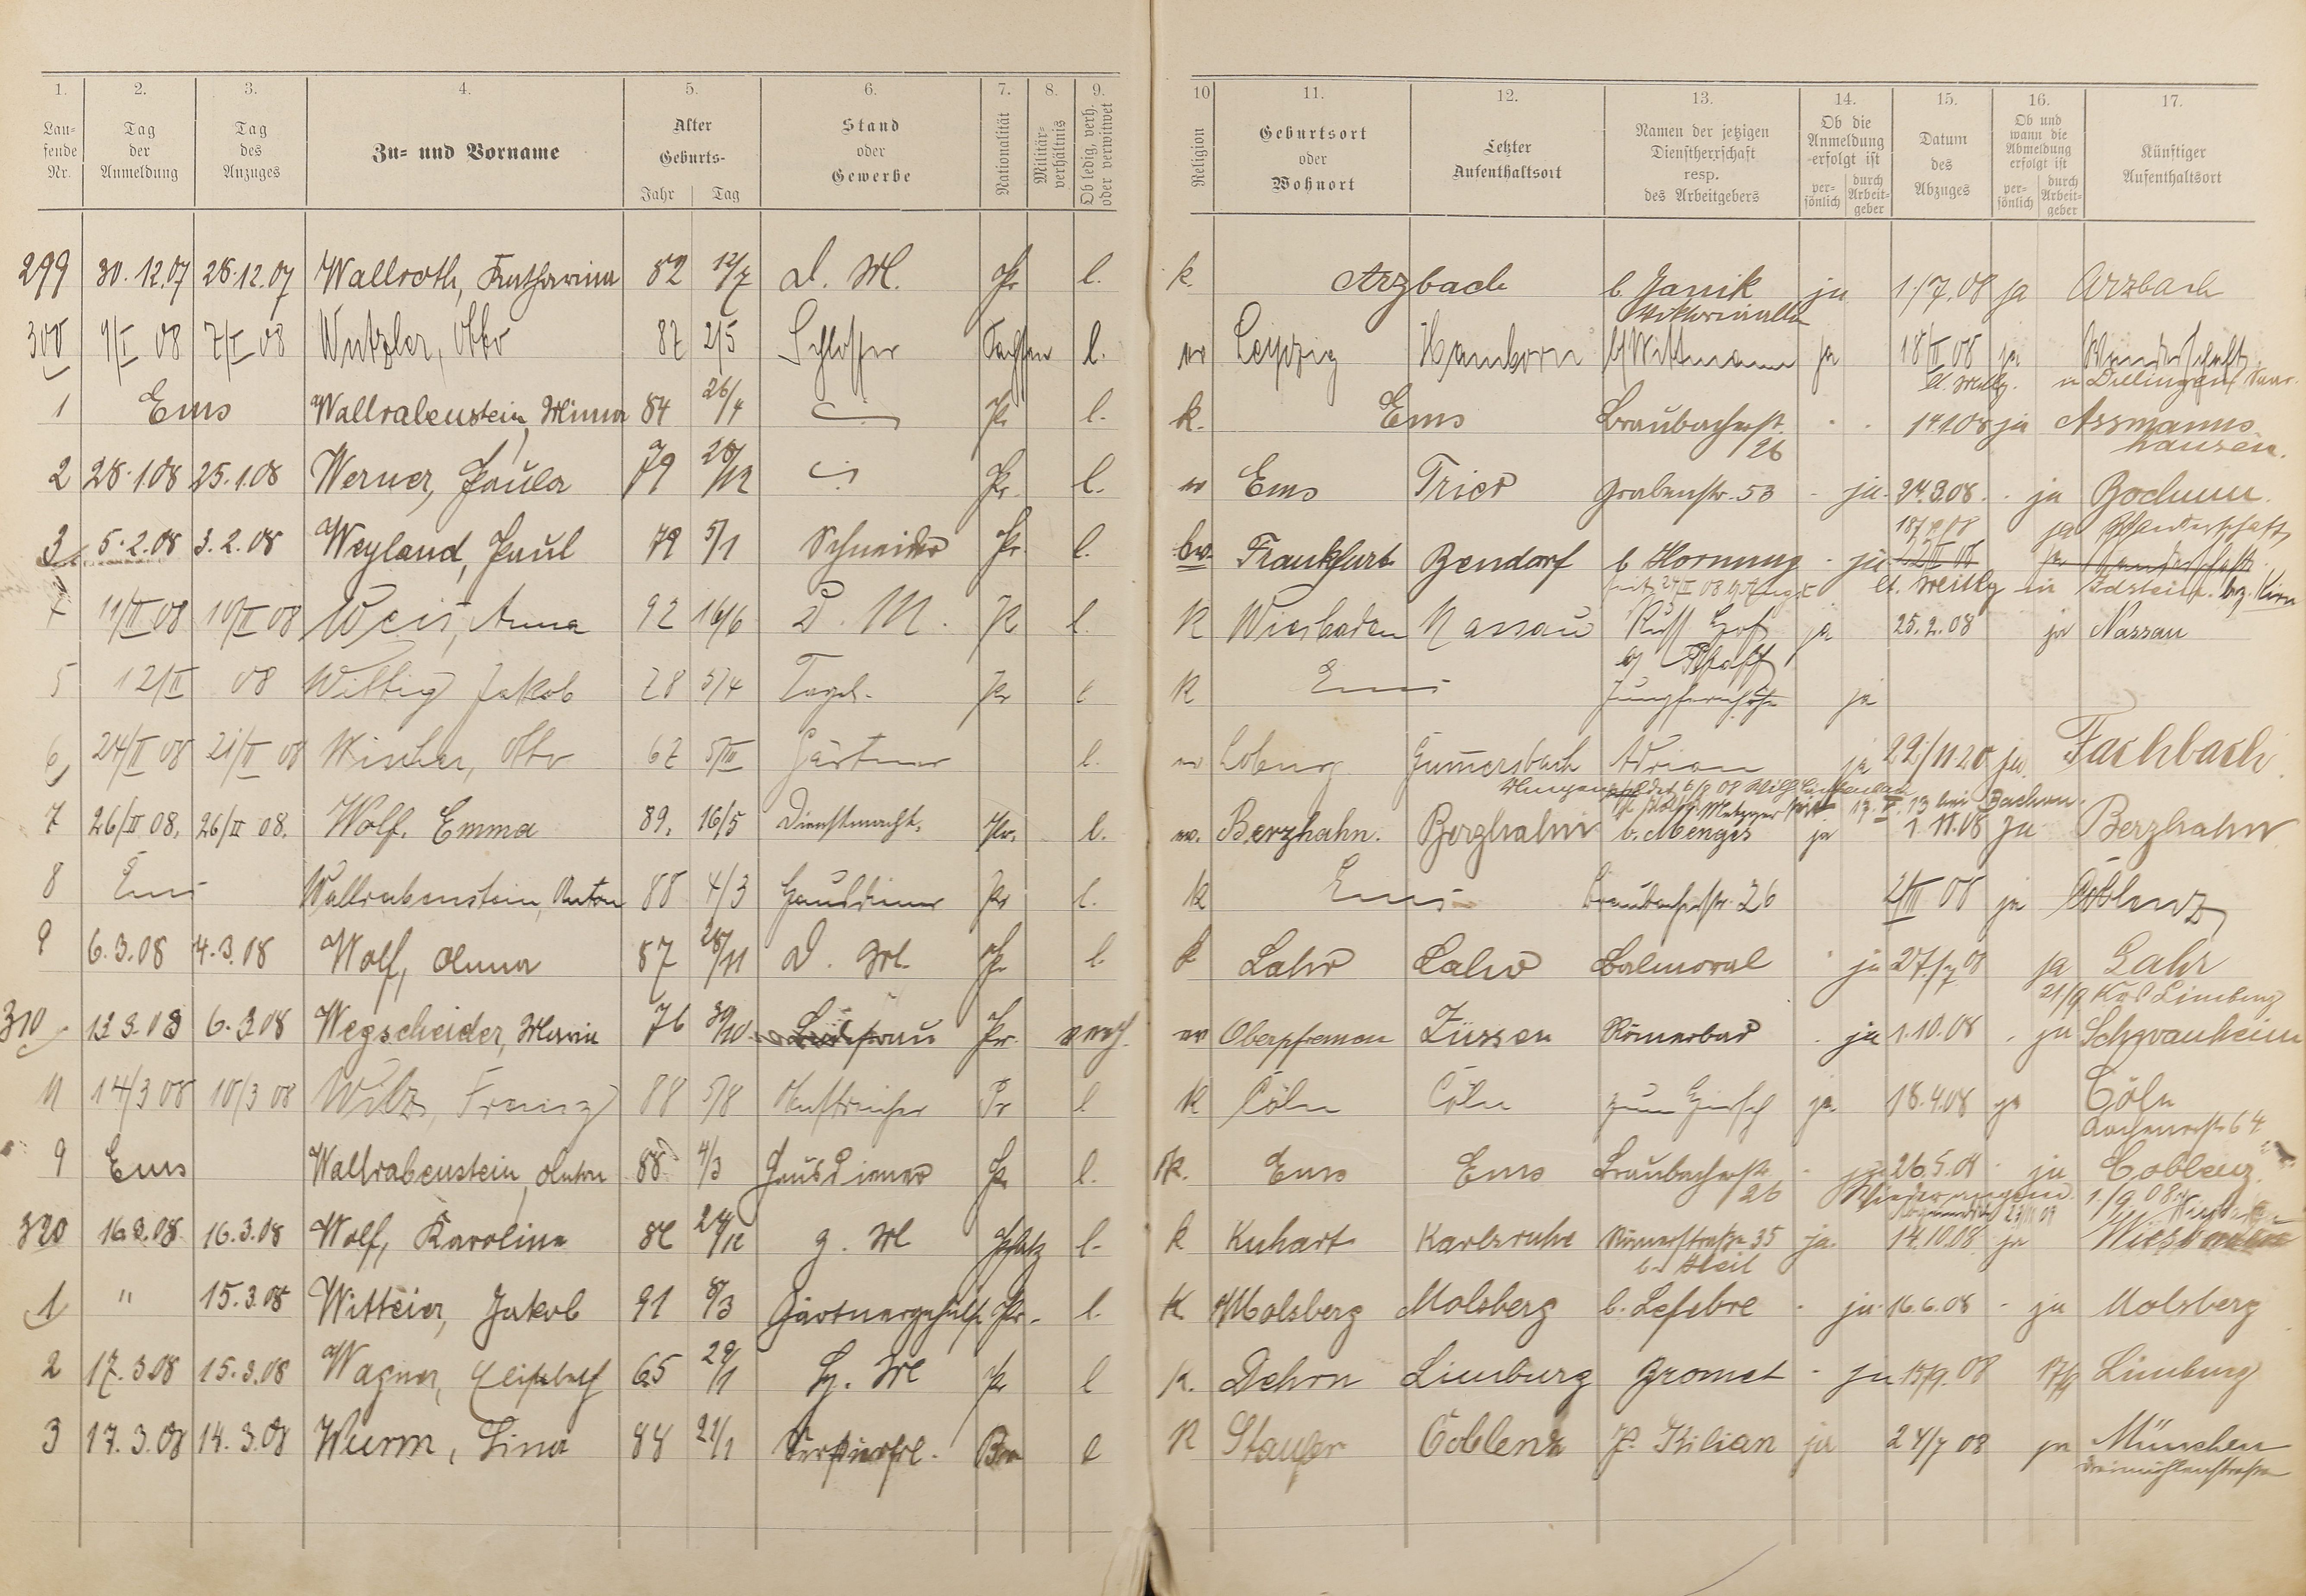 1. 2. 3. 4. 5. 6. 7. 8. 9. 10 11. 12. 13. 14. 15. 16. 17.
Lau-
fende
Nr.
Tag
der
Anmeldung
Tag
des
Anzuges
Zu- und Vorname
Alter
Geburts-
Jahr Tag
Stand
oder
Gewerbe
Nationalität
Militär-
verhältnis
Ob ledig, verh.
oder verwitwet
Religion
Geburtsort
oder
Wohnort
Letzter
Aufenthaltsort
Namen der jetzigen
Dienstherrschaft
resp.
des Arbeitgebers
Ob die
Anmeldung
erfolgt ist
per-
sönlich
durch
Arbeit-
geber
Datum
des
Abzuges
Ob und
wann die
Abmeldung
erfolgt ist
per-
sönlich
durch
Arbeit-
geber
Künftiger
Aufenthaltsort
299 30.12.07 28.12.07 Wallroth, Katharina 82 12/7 D. M. Pr l. k. Arzbach b. Janik ja 1./7.08 ja Arzbach
Viktoriaallee
300 9/I 08 7/I 08 Wutzler, Otto 87 2/5 Schlosser Sachsen l. ev Leipzig Hamborn b/Wittmann ja 18/II 08 ja Wanderschaft
lt. Mittlg. in Dillingen Saar.
1 Ems Wallrabenstein, Minna 84 26/4 Pr l. k. Ems Braubacherst. 14.1.08 ja Assmanns
26 hausen.
2 28.1.08 25.1.08 Werner, Paula 79 28/12 Pr. l. ev Ems Trier Grabenstr. 53 ja. 24.3.08. ja Bochum.
3 5.2.08 3.2.08 Weyland, Paul 79 5/1 Schneider Pr. l. ev. Frankfurt Bendorf b Hornung ja
ja Wanderschaft
lt. Mittlg in Idstein. bez. Kirn
4 11/II 08 10/II 08 Weis, Anna 92 16/6 D. M. Pr l. K Wiesbaden Nassau Russ Hof ja 25.2.08 ja Nassau
5 12/II 08 Wittig Jakob 28 5/4 Tagel. Pr l K Ems b/ Pfaff ja
Jungfernhöhe
6 24/II 08 21/II 08 Otto 67 5/III Gärtner l. ev Coburg Gummersbach Adrian ja 22/11.20 ja. Fachbach.
7 26/II 08. 26/II 08. Wolf. Emma 89. 16/5 Dienstmacht. Pr. l. ev. Berzhahn. Berzhahn b. Menges ja 1.11.08 Ja Berzhahn
8 Ems Wallrabenstein, Anton 88 4/3 Hausdiener Pr l. K Ems Braubacherstr. 26 2/III 08 ja Coblenz
9 6.3.08 4.3.08 Wolf, Anna 87 28/11 D. M. Pr l. k Lahr Lahr Balmoral ja 27./7 08 ja Lahr
21/9 Limburg
310 13.3.08 6.3.08 Wegscheider, Maria 76 30/10 Pr. verh. ev Züssen Römerbad ja 1.10.08 ja Schwanheim
11 14/3 08 10/3 08 Wilz, Franz 88 5/8 Anstreicher Pr l K Cöln Cöln zum Hirsch ja. 18.4.08 ja Cöln
Aachenerstr 64
9 Ems Wallrabenstein, Anton 88 4/3 Hausdiener Pr l. k. Ems Ems Braubacherstr. 26.5.08 ja Coblenz.
26
320 16.3.08 16.3.08 Wolf, Karoline 86 24/12 Z. M Pfalz l. k Kuhart Karlsruhe Römerstraße 35 ja. 14.10.08 ja Wiesbaden
1 " 15.3.08 Witteier, Jakob 91 8/3 Gärtnergehülf. Pr. l. K Molsberg Molsberg b. Lefebre ja 16.6.08 ja Molsberg
2 17.3.08 15.3.08 Wagner, Elisabeth 65 29/1 H. M Pr l K. Dehrn Limburg Gromet ja 15/9.08 17/9 Limburg
3 17.3.08 14.3.08 Wurm, Lina 88 21/1 l K Coblenz P. Kilian ja 24/7 08 ja München
Dreimühlenstraße